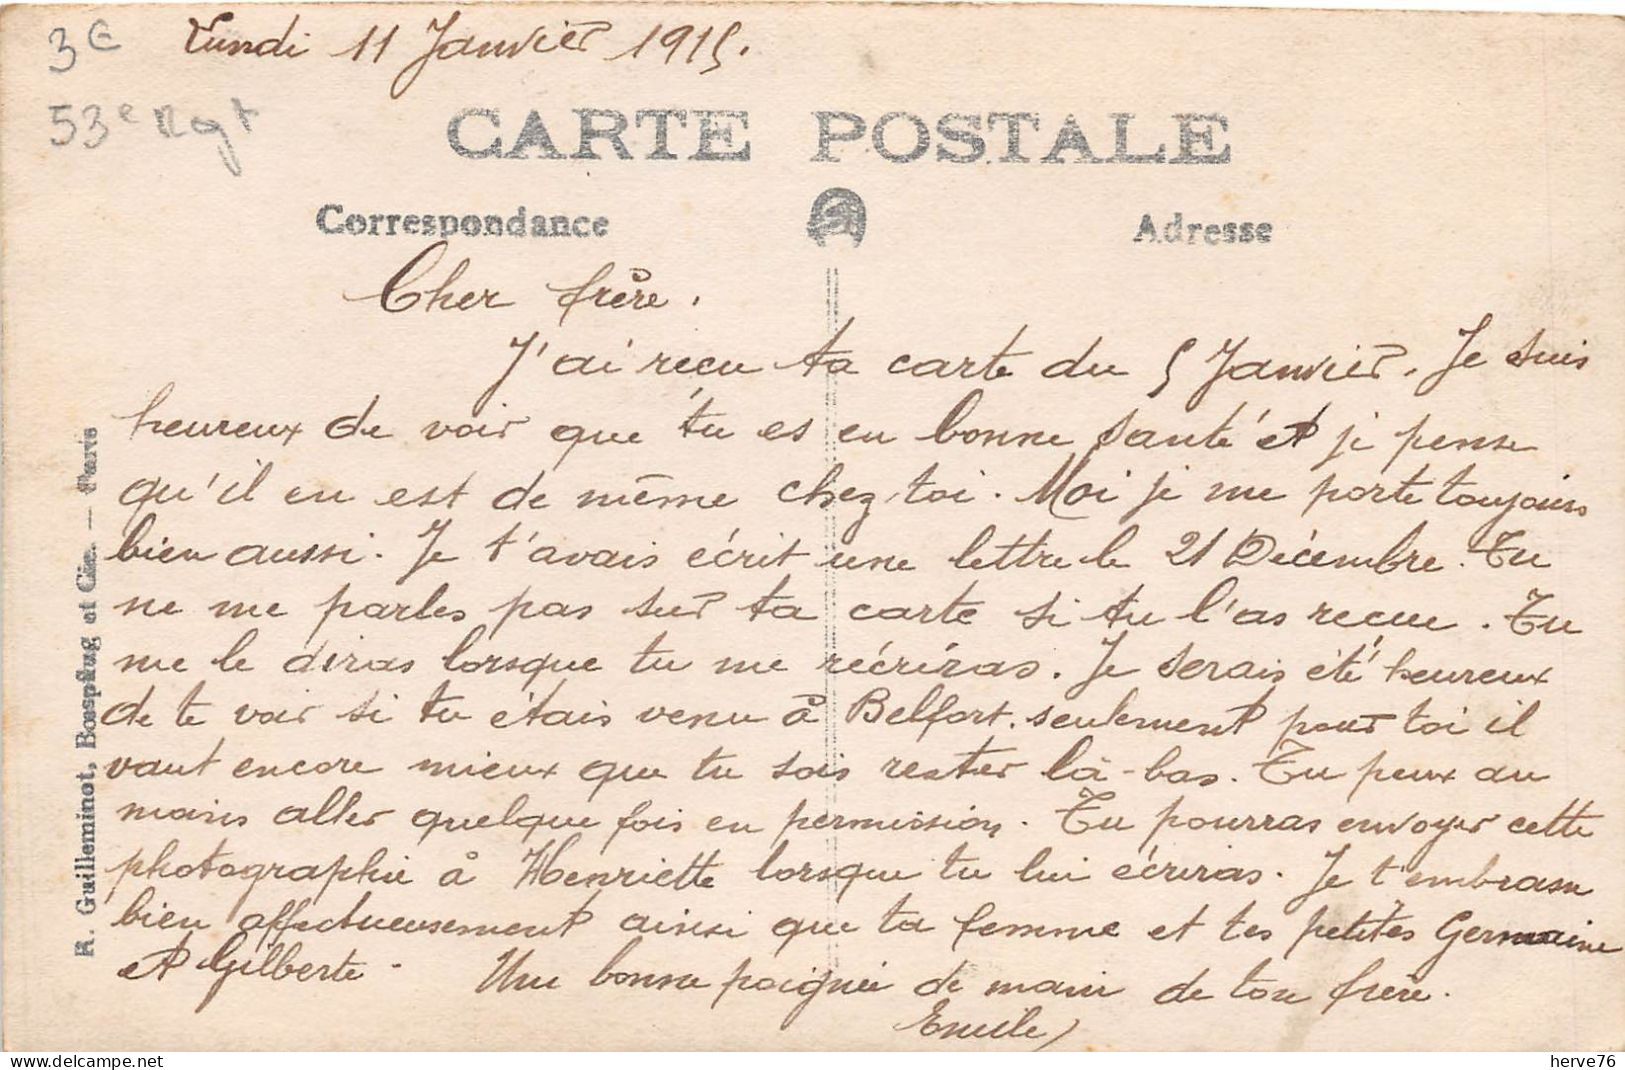 3€ Lundi 11 Janvier 1915.
53e Rgt
CARTE POSTALE
Correspondance Adresse
Cher frère.
J'ai reçu ta carte du 5 Janvier. Je suis
heureux de voir que tu es en bonne santé et je pense
qu'il en est de même chez toi. Moi je me porte toujours
bien aussi. Je t'avais écrit une lettre le 21 Décembre. Tu
ne me parles pas sur ta carte si tu l'as recue. Tu
me le diras lorsque tu me récriras. Je serais été heureux
de te voir si tu étais venu à Belfort. seulement pour toi il
vaut encore mieux que tu sois rester là-bas. Tu peux au
moins aller quelque fois en permission. Tu pourras envoyer cette
photographie à Henriette lorsque tu lui écriras. Je t'embrasse
bien affectueusement ainsi que ta femme et tes petites Germaine
et Gilberte. Une bonne poignée de main de ton frère.
Emile
R. Guilleminot, Bœspflug et Cie. — Paris
delcampe.net
herve76